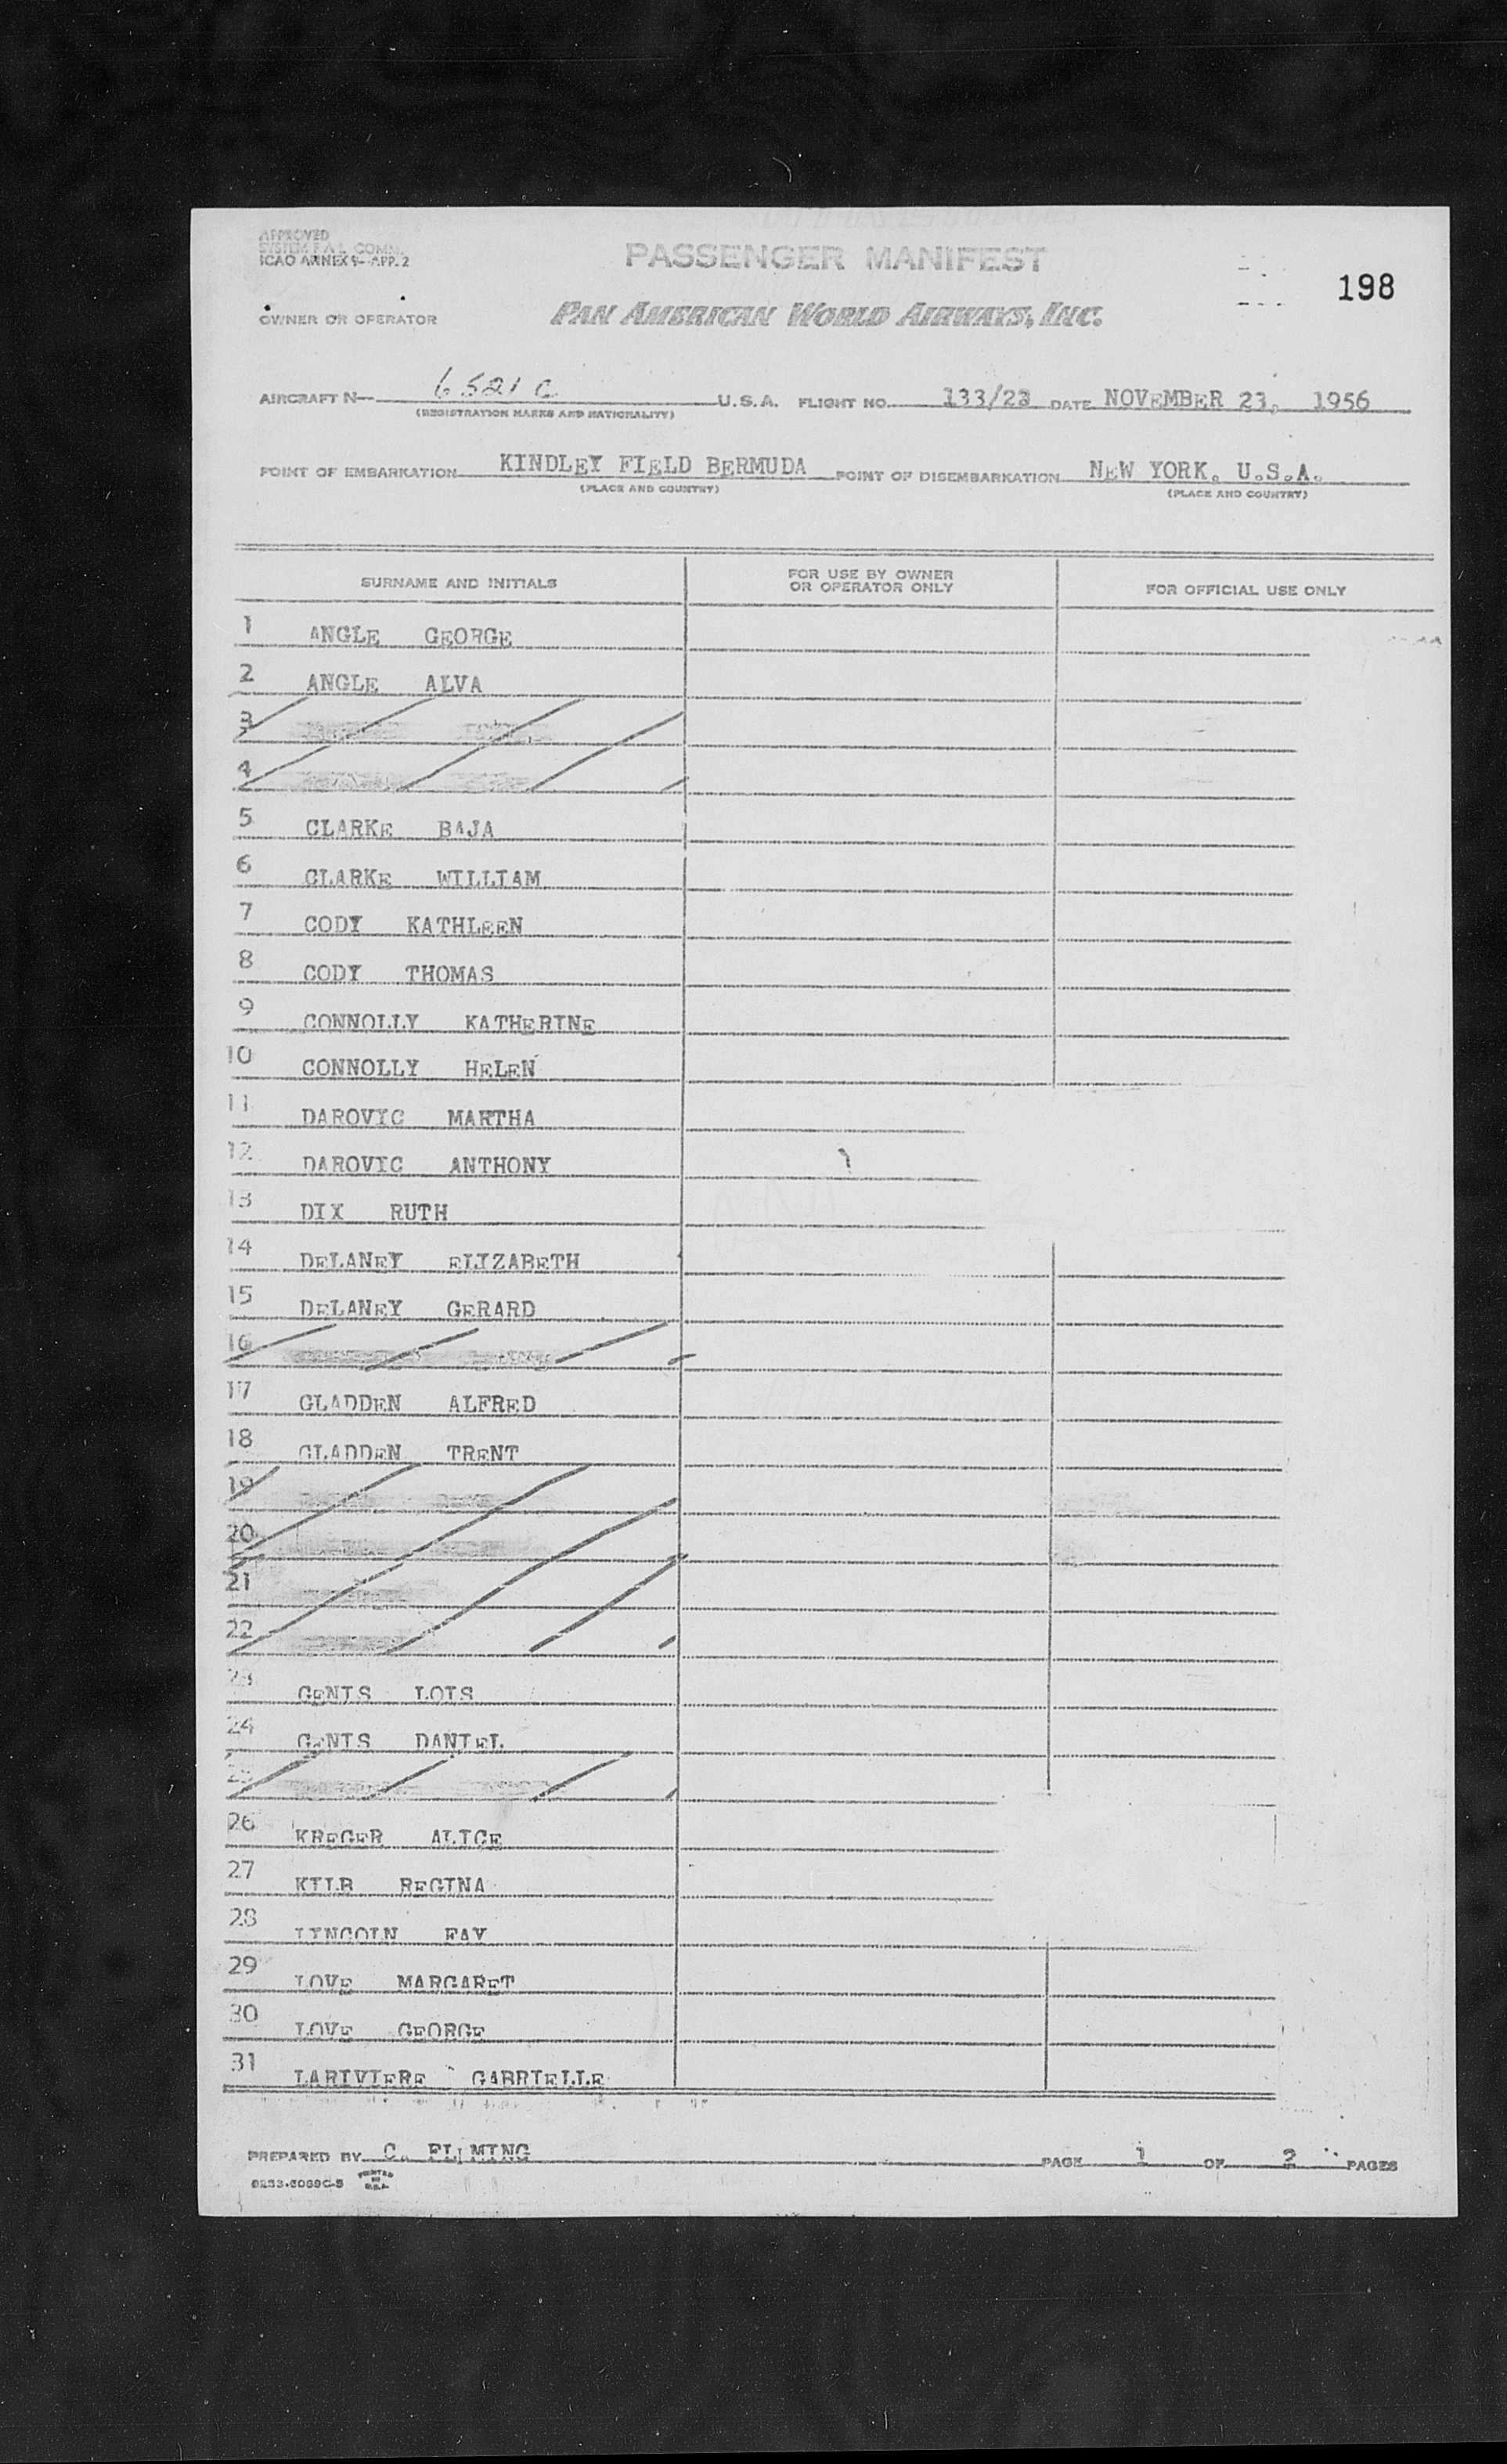 APPROVED
SYSTEM F.A.L. COMM.
ICAO ANNEX 9- APP. 2
PASSENGER MANIFEST
198
OWNER OR OPERATOR PAN AMERICAN WORLD AIRWAYS, INC.
AIRCRAFT N— 6521C U.S.A. FLIGHT NO. 133/23 DATE NOVEMBER 23, 1956
(REGISTRATION MARKS AND NATIONALITY)
POINT OF EMBARKATION KINDLEY FIELD BERMUDA POINT OF DISEMBARKATION NEW YORK. U.S.A.
(PLACE AND COUNTRY) (PLACE AND COUNTRY)
SURNAME AND INITIALS FOR USE BY OWNER OR OPERATOR ONLY FOR OFFICIAL USE ONLY
1 ANGLE GEORGE
2 ANGLE ALVA
3
4
5 CLARKE BAJA
6 CLARKE WILLIAM
7 CODY KATHLEEN
8 CODY THOMAS
9 CONNOLLY KATHERINE
10 CONNOLLY HELEN
11 DAROVIC MARTHA
12 DAROVIC ANTHONY
13 DIX RUTH
14 DELANEY ELIZABETH
15 DELANEY GERARD
16
17 GLADDEN ALFRED
18 GLADDEN TRENT
19
20
21
22
23 GENTS LOIS
24 GENTS DANIEL
25
26 KREGER ALICE
27 KILB REGINA
28 LINCOLN FAY
29 LOVE MARGARET
30 LOVE GEORGE
31 LARIVIERE GABRIELLE
PREPARED BY C. FLEMING PAGE 1 OF 2 PAGES
PRINTED IN U.S.A.